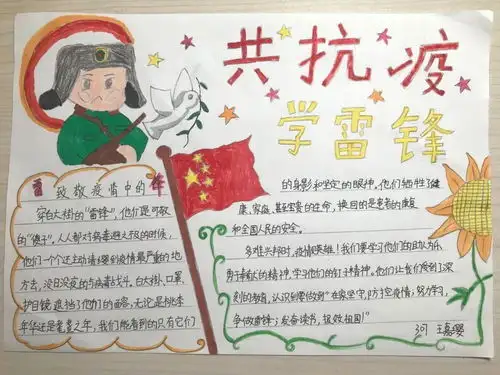 共抗疫
学雷锋
致敬疫情中的
穿白大褂的“雷锋”,他们是可敬
的“傻子”。人人都对病毒避之不及的时候,
他们一个个还主动请缨到疫情最严重的地
方去,没日没夜的与病毒战斗。白大褂、口罩、
护目镜,遮挡了他们的面容,无论是桃李
年华还是耄耋之年,我们能看到的只有它们
的身影和坚定的眼神。他们牺牲了健
康、家庭、甚至宝贵的生命,换回的是患者的康复
和全国人民的安全。
多难兴邦时,疫情现英雄!我们要学习他们的助人为乐,
勇于奉献的精神,学习他们的钉子精神。他们让我们受到了深
刻的教育,认识到要做到“在家坚守,防控疫情;努力学习,
争做雷锋;发奋读书,报效祖国!”
王嘉璎